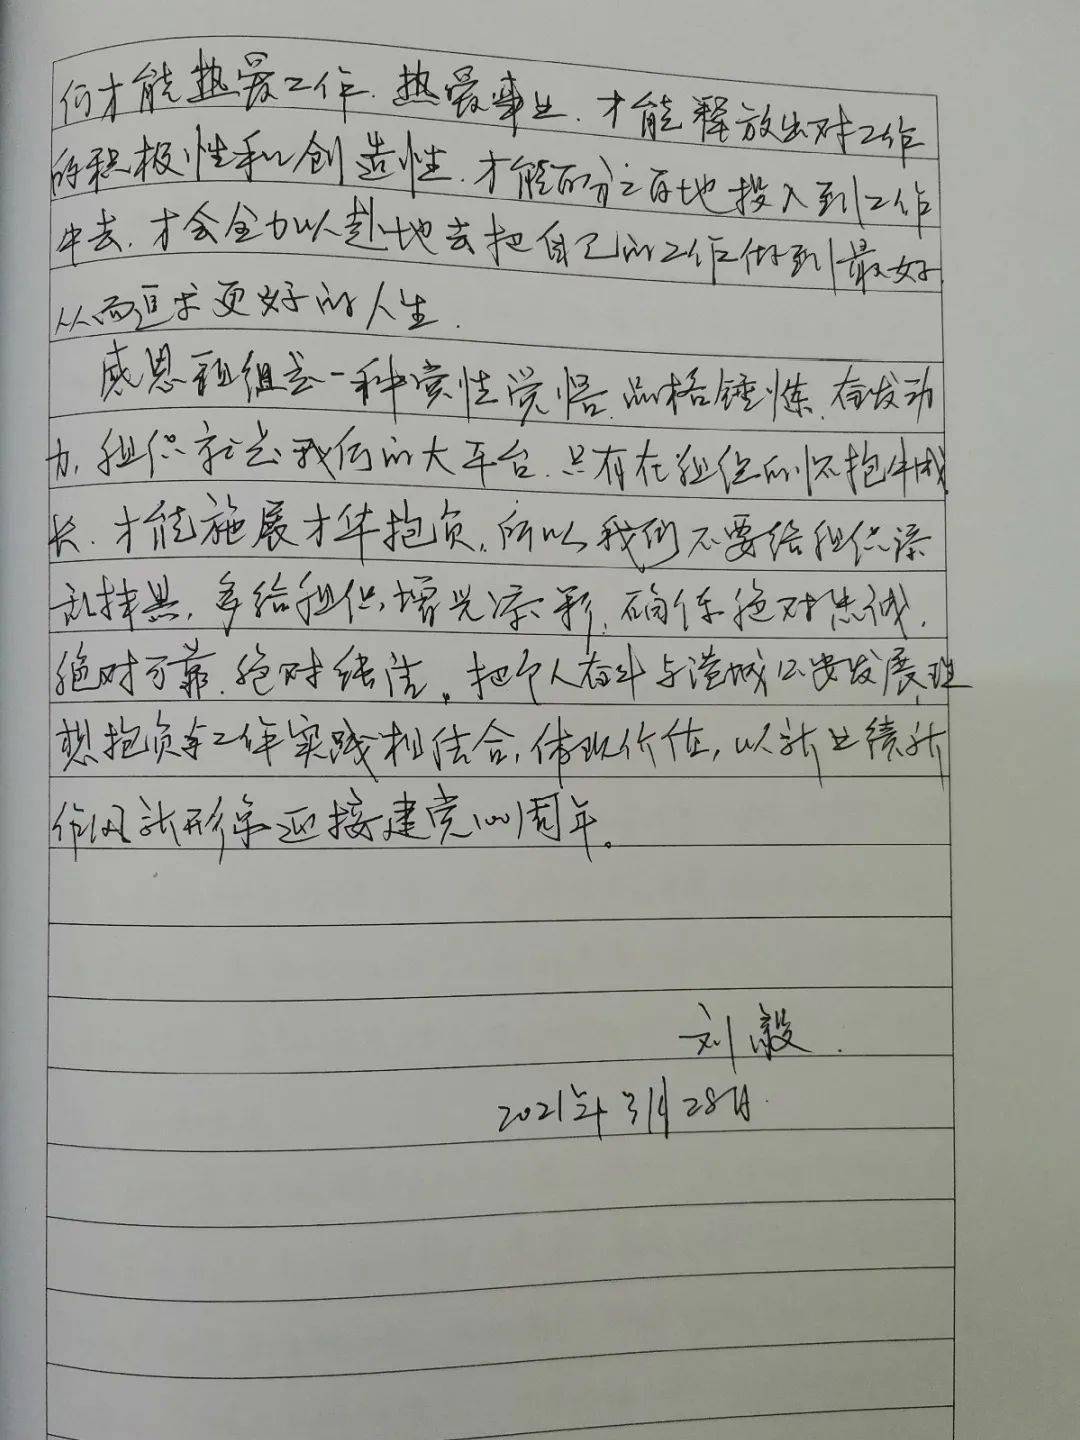 们才能热爱工作、热爱事业，才能释放出对工作
的积极性和创造性，才能百分之百地投入到工作
中去，才会全力以赴地去把自己的工作做到最好，
从而追求更好的人生。
感恩组织是一种党性觉悟、品格锤炼、奋发动
力，组织就是我们的大平台，只有在组织的怀抱中成
长，才能施展才华抱负。所以我们不要给组织添
乱抹黑，多给组织增光添彩，确保绝对忠诚，
绝对可靠，绝对纯洁。把个人奋斗与港城口岸发展，理
想抱负与工作实践相结合，体现价值，以新业绩新
作风新形象迎接建党100周年。
刘毅
2021年3月28日